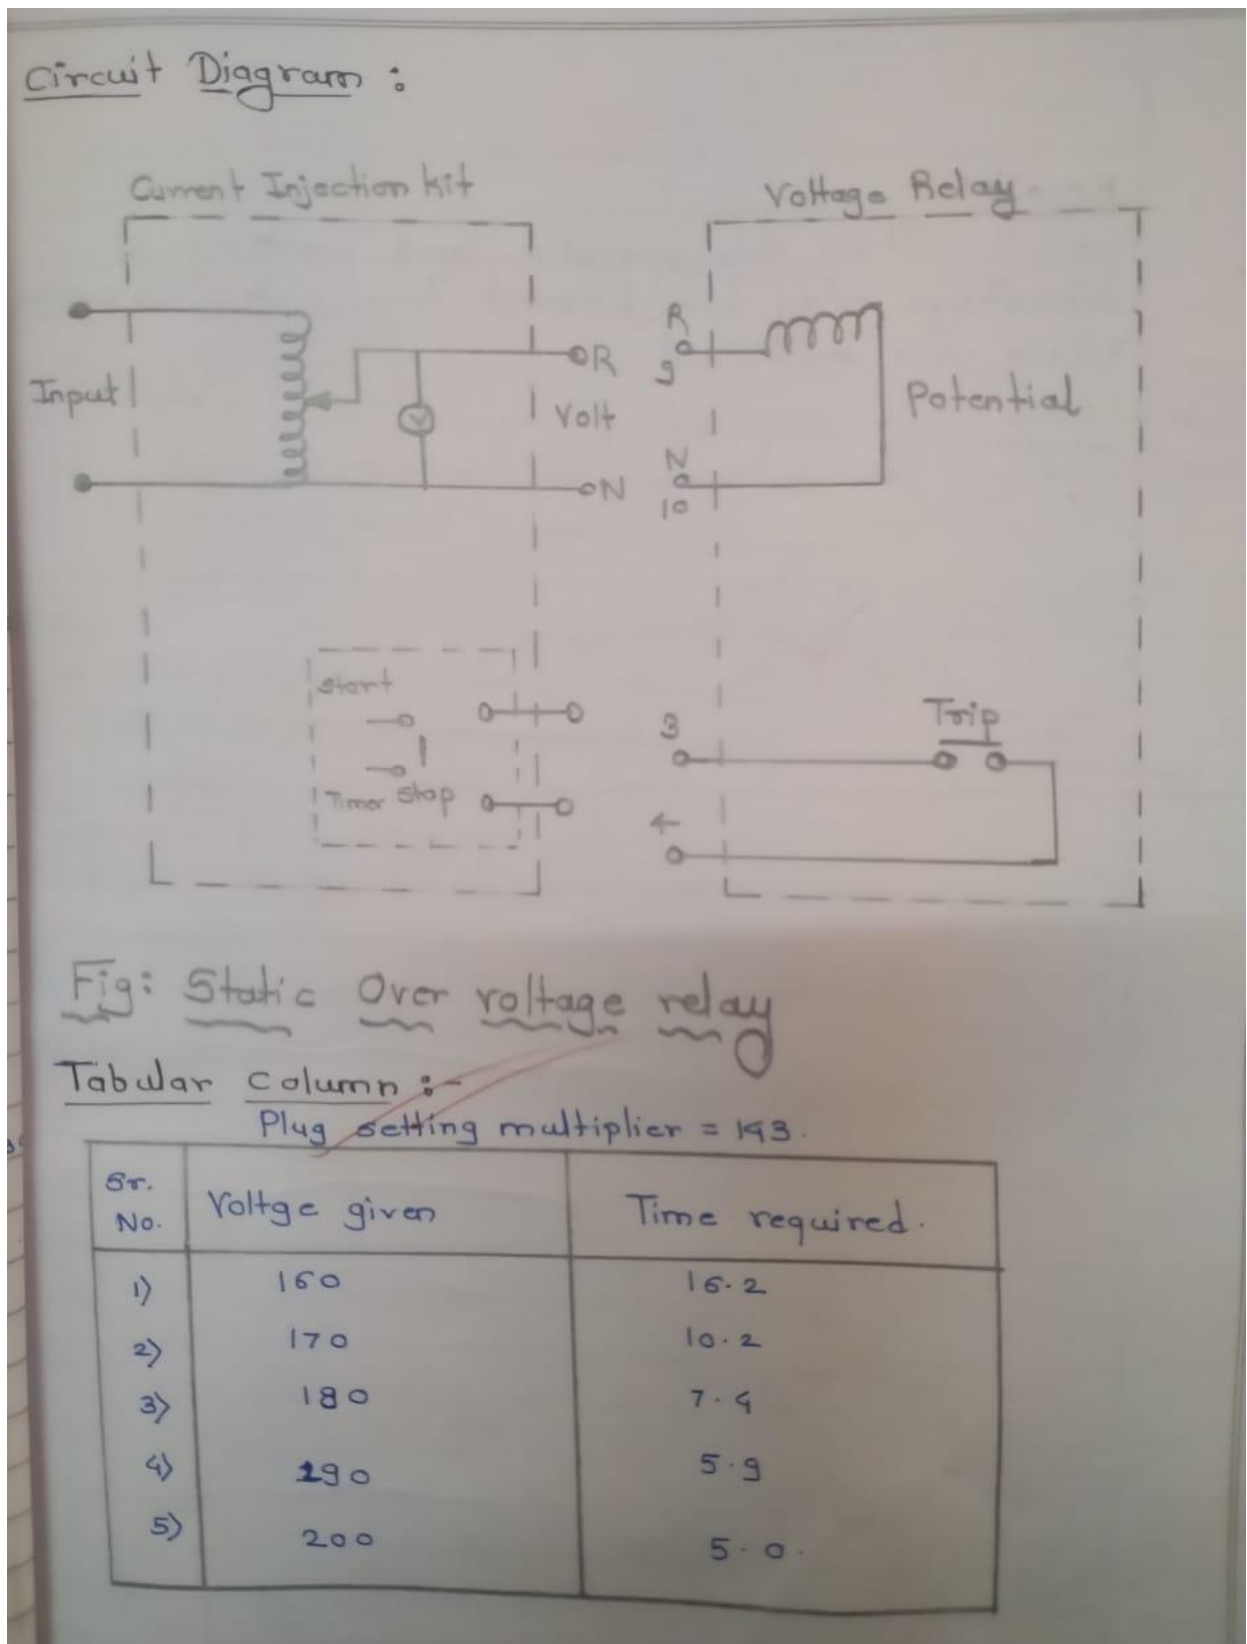 Circuit Diagram :
Current Injection kit
Voltage Relay
Input
R
Volt
N
V
R
9
N
10
Potential
Start
Timer Stop
3
4
Trip
Fig: Static Over voltage relay
Tabular column :-
Plug setting multiplier = 143.
Sr. No. Voltge given Time required.
1) 160 16.2
2) 170 10.2
3) 180 7.4
4) 190 5.9
5) 200 5.0.